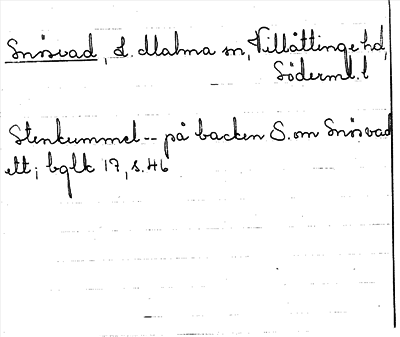 Snösvad, L. Malma sn, Villåttinge hd,
Söderml. l
Stenkummel -- på backen S. om Snösvad
ett; bglk 17, s. 46